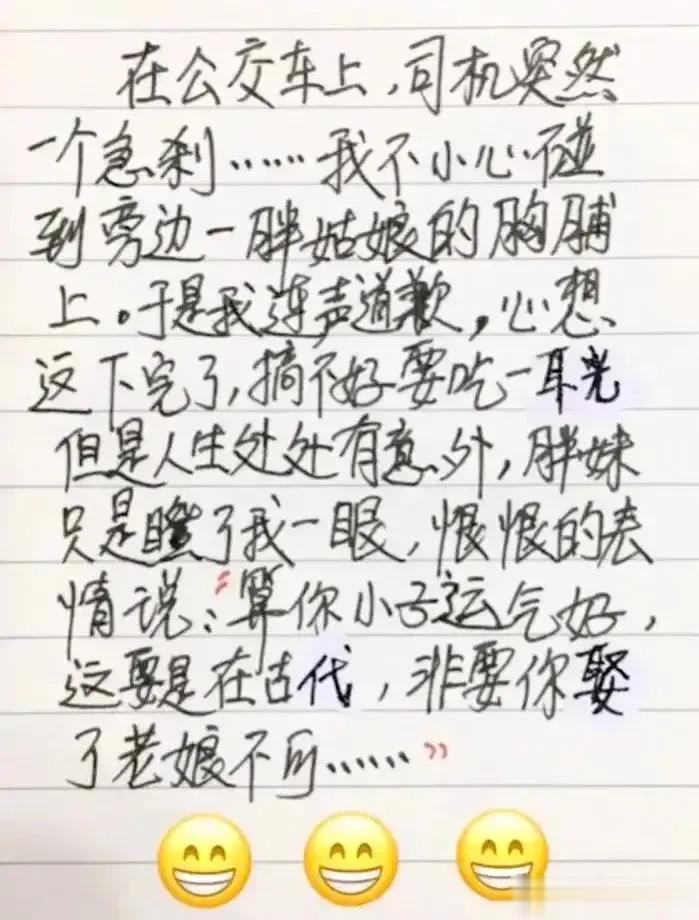 在公交车上，司机突然
一个急刹……我不小心碰
到旁边一胖姑娘的胸脯
上。于是我连声道歉，心想
这下完了，搞不好要吃一耳光
但是人生处处有意外，胖妹
只是瞪了我一眼，恨恨的表
情说：“算你小子运气好，
这要是在古代，非要你娶
了老娘不可……”